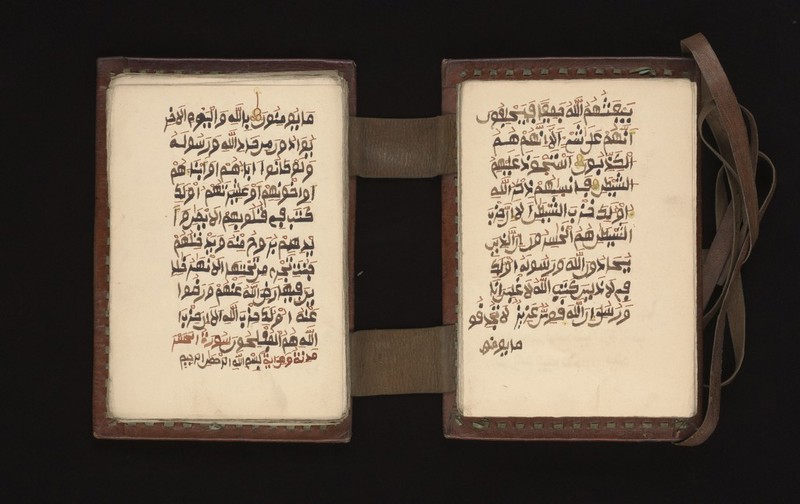 يبعثهم الله جميعا فيحلفون
أنهم على شىء ألا إنهم هم
الكذبون استحوذ عليهم
الشيطن فأنسيهم ذكر الله
أولئك حزب الشيطن ألا إن حزب
الشيطن هم الخسرون إن الذين
يحادون الله ورسوله أولئك
في الأذلين كتب الله لأغلبن أنا
ورسلي إن الله قوي عزيز لا تجد قو
ما يومنو
ما يومنون بالله واليوم الآخر
يوادون من حاد الله ورسوله
ولو كانوا آباءهم أو أبناءهم
أو إخونهم أو عشيرتهم أولئك
كتب في قلوبهم الايمن وأ
يدهم بروح منه ويدخلهم
جنت تجري من تحتها الأنهر خلد
ين فيها رضي الله عنهم ورضوا
عنه أولئك حزب الله ألا إن حزب
الله هم المفلحون سورة الحشر
مدنية وهي آية بسم الله الرحمن الرحيم